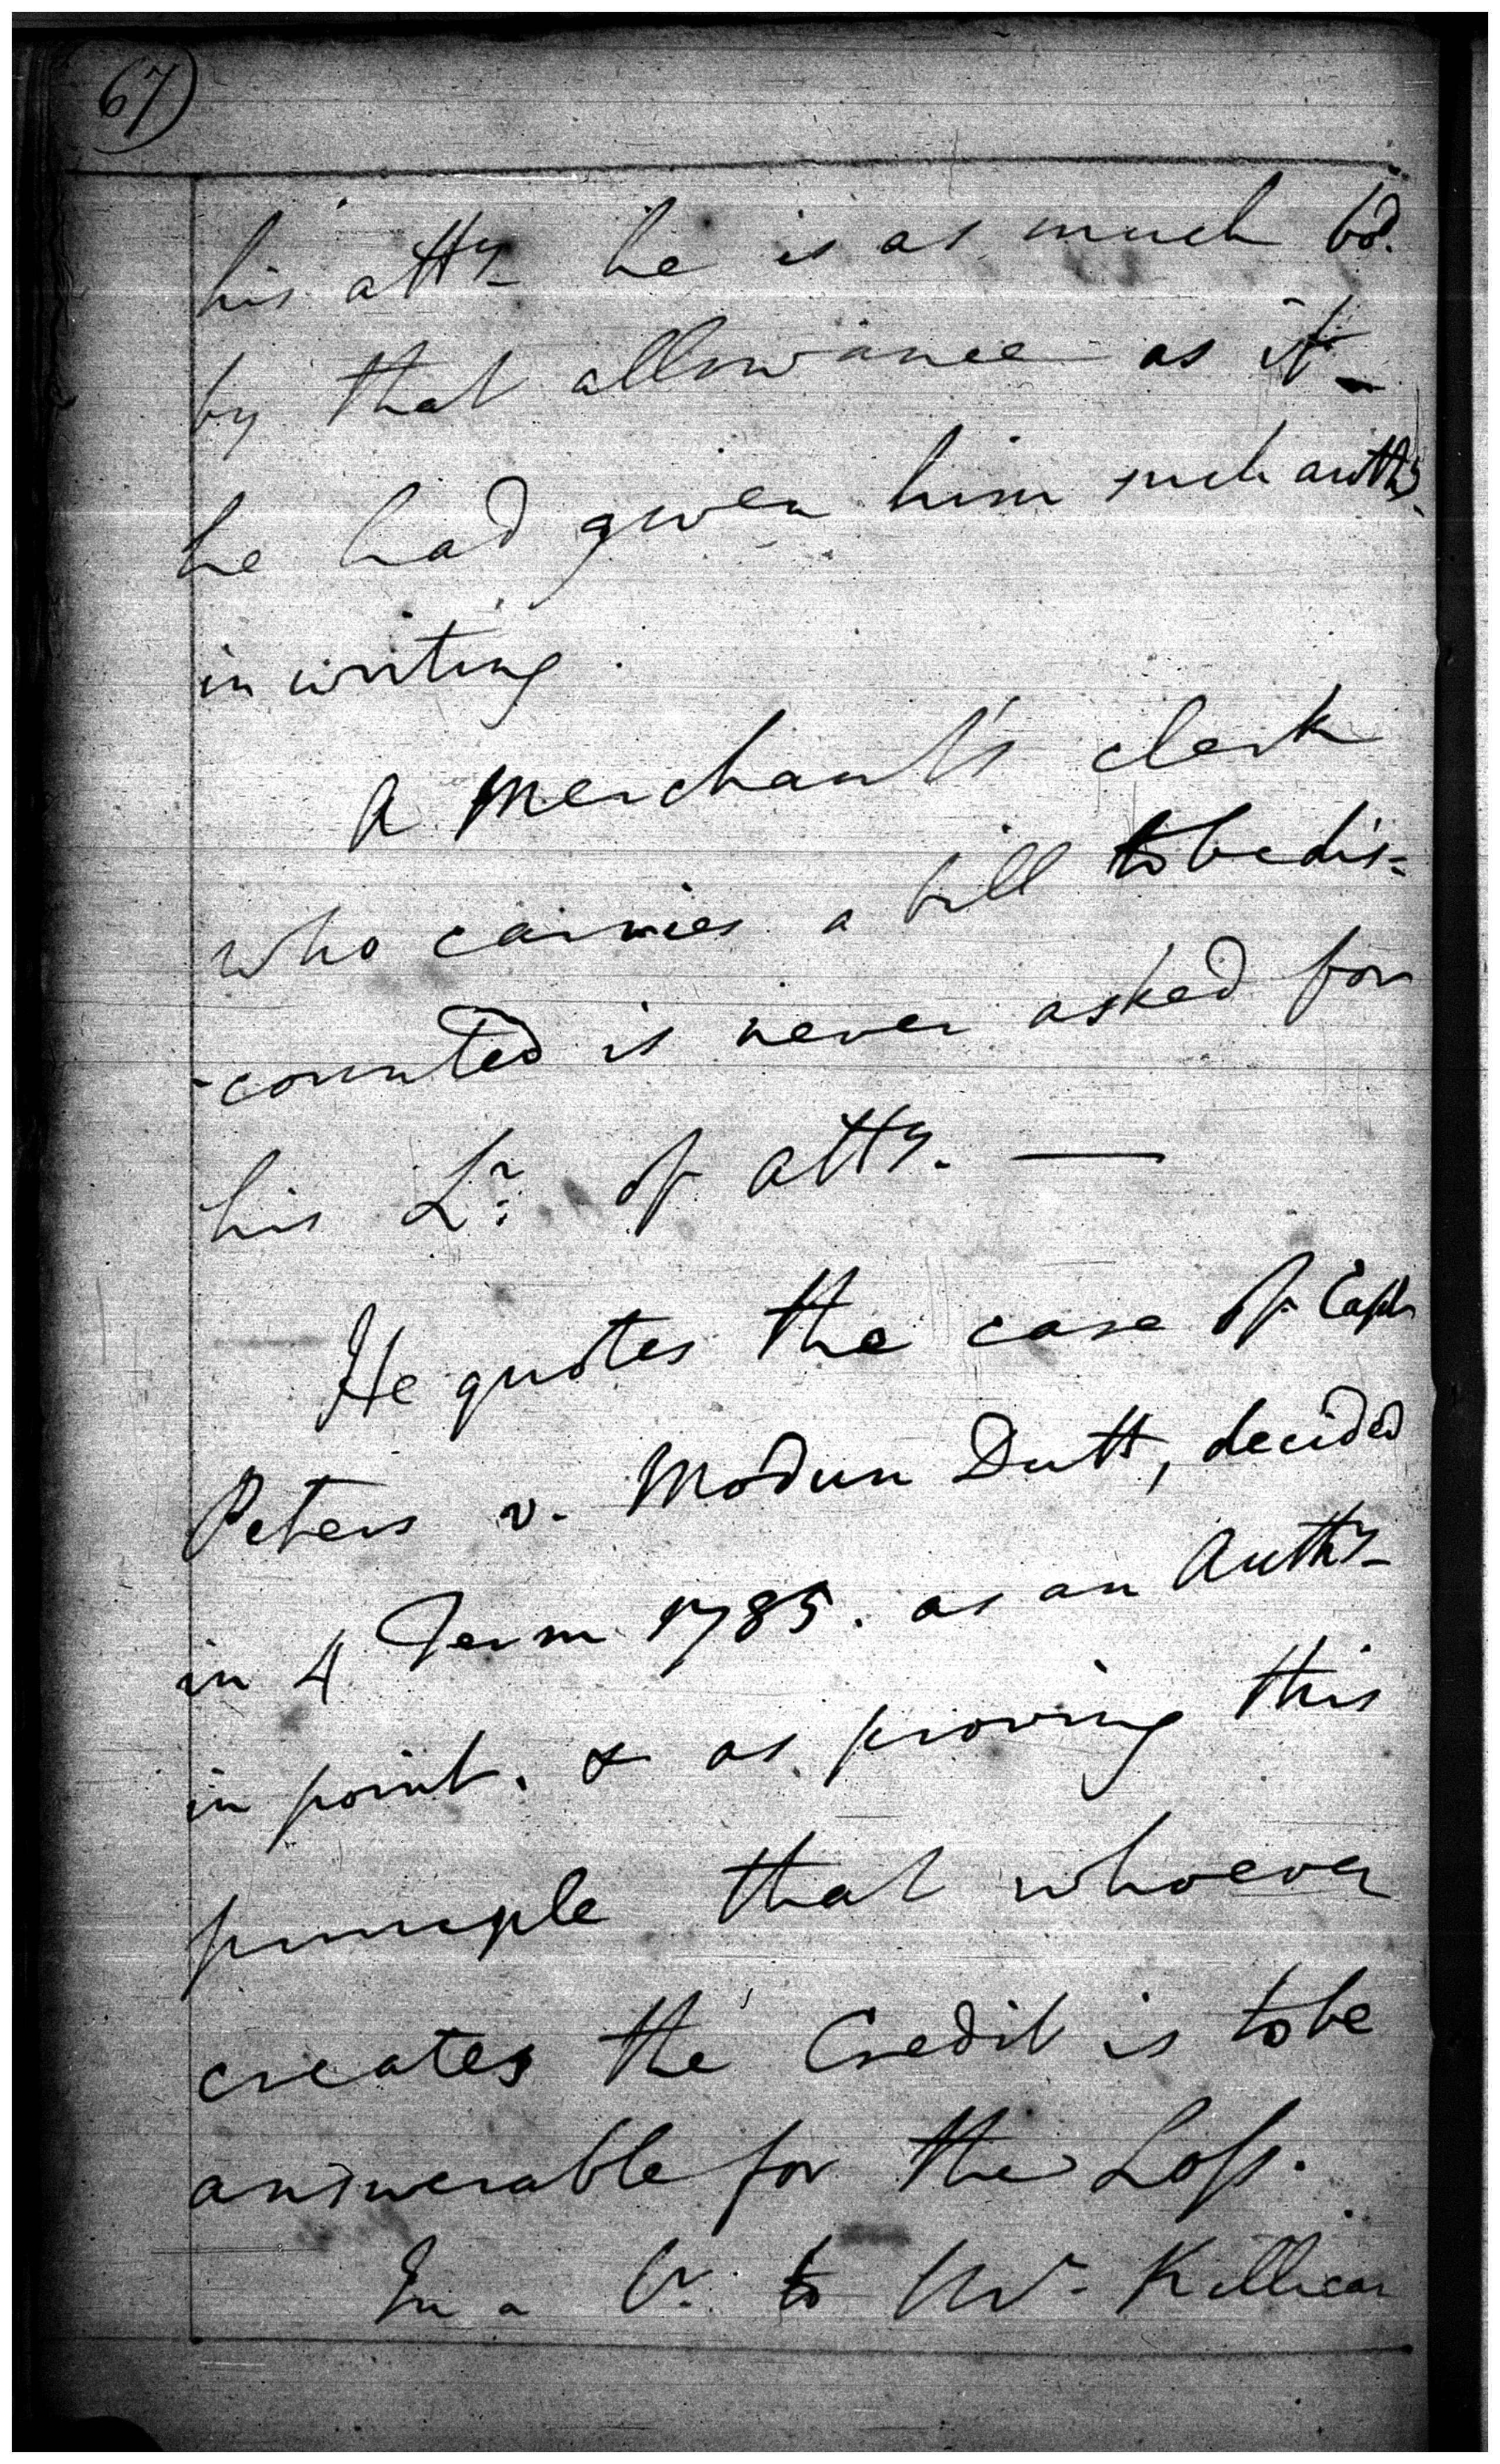 67)
his atty he is as much bd.
by that allowance as if
he had given him such authy
in writing.
A Merchant's clerk
who carries a bill to be dis=
-counted is never asked for
his Lr. of atty. —
He quotes the case of Capt
Peters v. Modun Dutt, decided
in 4 Term 1785. as an Authy
in point. & as proving this
principle that whoever
creates the Credit is to be
answerable for the Loss.
In a to Mr. Killican